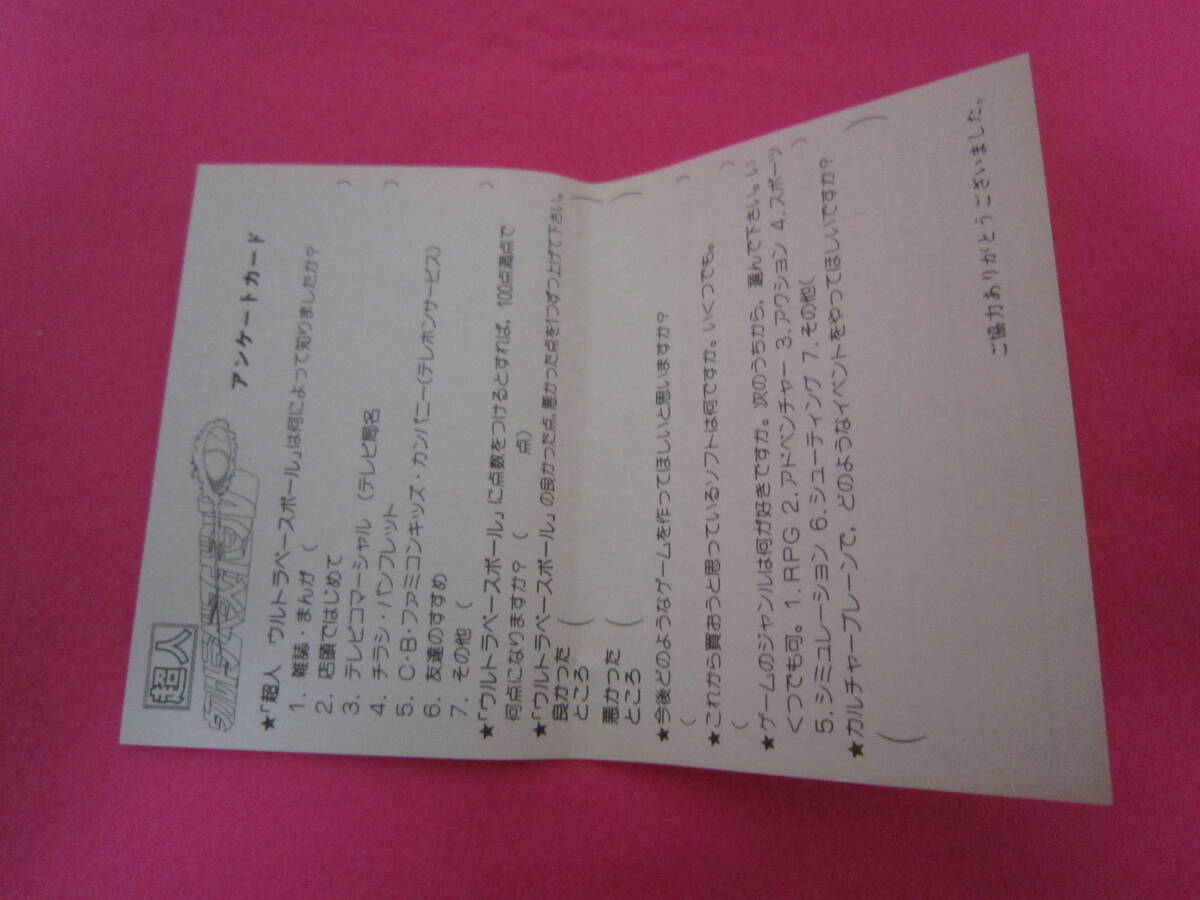 超人
ウルトラベースボール
アンケートカード
★「超人 ウルトラベースボール」は何によって知りましたか?
1. 雑誌・まんが ( )
2. 店頭ではじめて
3. テレビコマーシャル (テレビ局名 )
4. チラシ・パンフレット
5. C・B・ファミコンキッズ・カンパニー(テレホンサービス)
6. 友達のすすめ
7. その他 ( )
★「ウルトラベースボール」に点数をつけるとすれば、100点満点で
何点になりますか? ( 点)
★「ウルトラベースボール」の良かった点、悪かった点を1つずつ上げて下さい。
良かった
ところ ( )
悪かった
ところ ( )
★今後どのようなゲームを作ってほしいと思いますか?
( )
★これから買おうと思っているソフトは何ですか。いくつでも。
( )
★ゲームのジャンルは何が好きですか。次のうちから、選んで下さい。い
くつでも可。1. RPG 2. アドベンチャー 3. アクション 4. スポーツ
5. シミュレーション 6. シューティング 7. その他( )
★カルチャーブレーンで、どのようなイベントをやってほしいですか?
( )
ご協力ありがとうございました。